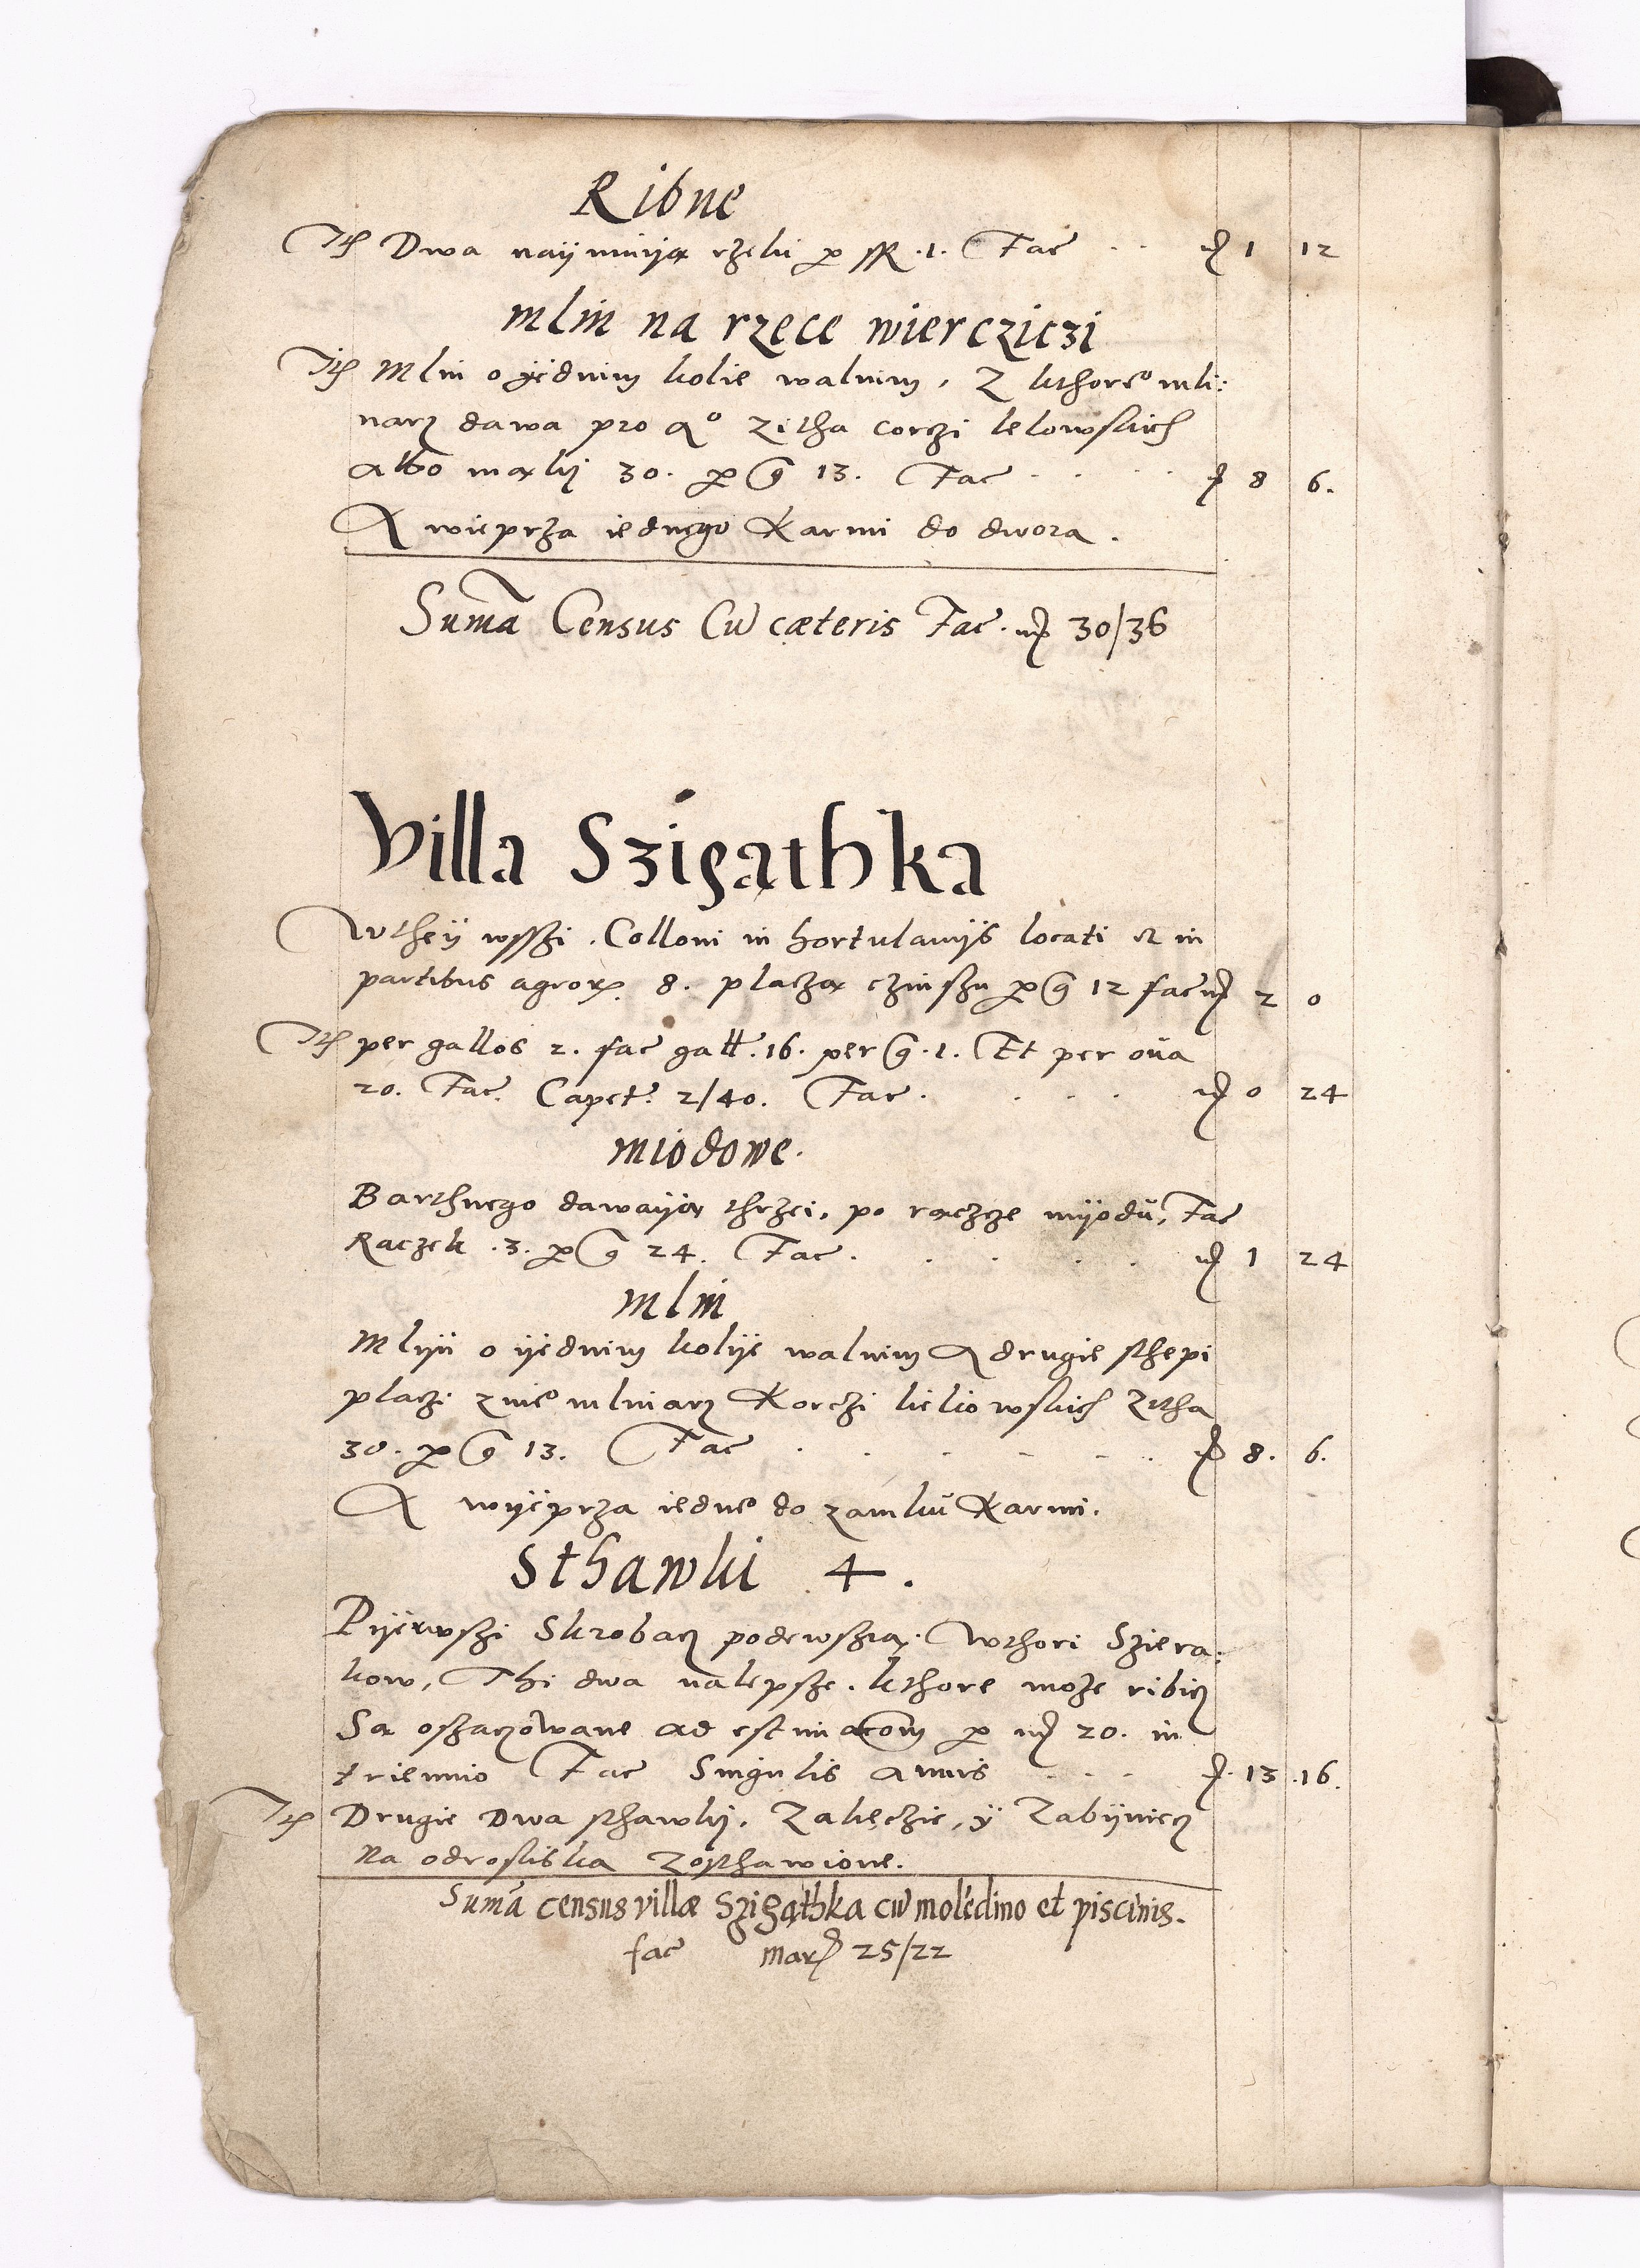 Ribne
Itē Dwa nayminyą rzeki ꝑ fl .1. Fac̄ .. mͬ 1 12
mlin na rzece wiercziczi
Itē Mlin o yednim kolie walnim, Z kthoreº mli:
narz dawa pro aº Zitha Corczi lelowskich
albo mąki 30. ꝑ g̃ 13. Fac̄ . . . mͬ 8 6.
A wieprza iednego Karmi do dwora.
Sum̄a Census Cū cæteris Fac̄. mͬ 30/36
Villa Szigąthka
Wthey wsszi. Colloni in hortulanijs locati et in
partibus agroꝝ 8. płaczą czinszu ꝑ g̃ 12 fac̄ mͬ 2 0
Itē per gallos 2. fac̄ gałł. 16. per g̃ .1. Et per oūa
20. Fac̄. Capet. 2/40. Fac̄. . . . mͬ 0 24
miodowe.
Barthnego dawayą thrzei, po rączcze myodū, Fac̄
Raczek .3. ꝑ g̃ 24. Fac̄. . . . . mͬ 1 24
mlin
Mlyn o yednim kolye walnim A drugie sthepi
placzi znieº mlinarz Korczi lieliowskich Zitha
30. ꝑ g̃ 13. Fac̄ . . . . . mͬ 8. 6.
A wyeprza iedneº do zamkū Karmi.
Sthawki 4.
Pyerwszi Skrobacz podewszią. Wthori Sziera:
kow, Thi dwa nalepsze. kthore może ribicz
Są oszaczowane ad estimacōm ꝑ mͬ 20. in
triennio Fac̄ Singulis annis . . . mͬ 13 .16.
Itē Drugie Dwa sthawky. Zalęczie, y Zabyniecz
Na odrosliska Zosthawione.
Sumā census villæ Szigąthka cū moledino et piscinis.
fac̄ marͨ 25/22